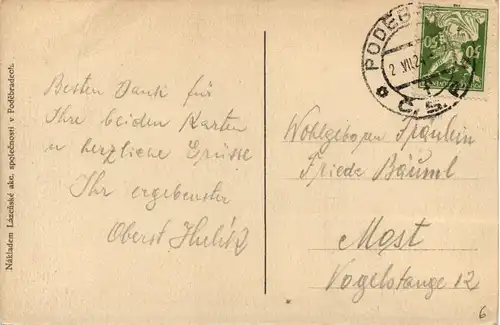 Nákladem Lázeňské akc. společnosti v Poděbradech.
Besten Dank für
Ihre beiden Karten
u herzliche Grüsse
Ihr ergebenster
Oberst
PODĚB
2 VII 24
Č.S.R.
50
50
Wohlgeboren Fräulein
Friede Bäuml
Most
Vogelstange 12
6